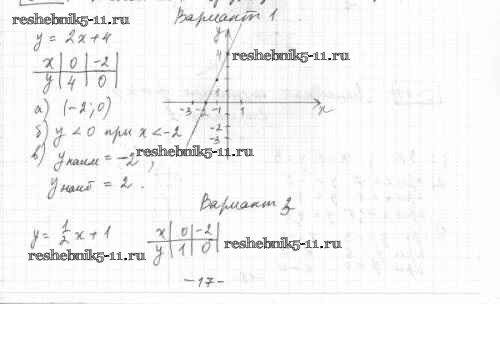 Вариант 1
reshebnik5-11.ru
y = 2x+4
x | 0 | -2
y | 4 | 0
reshebnik5-11.ru
y
4
1
-3 -2 -1 1 x
-2
-3
а) (-2; 0)
б) y < 0 при x < -2
в) yнаим = -2,
reshebnik5-11.ru
yнаиб = 2.
Вариант 3
y = 1/2 x + 1
x | 0 | -2
y | 1 | 0
reshebnik5-11.ru
reshebnik5-11.ru
-17-